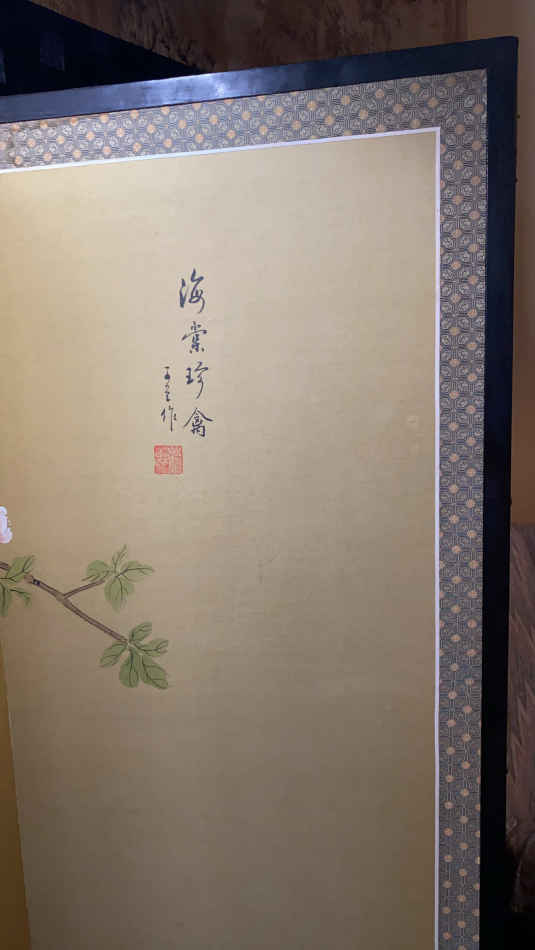 海棠珍禽
作